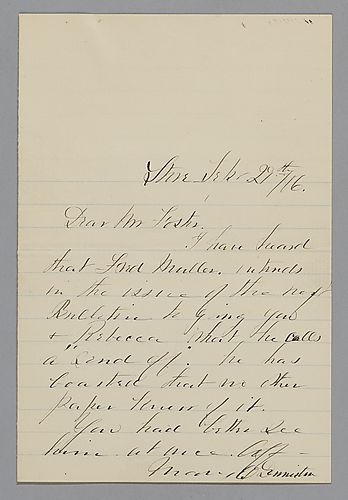 Dear Mr Foster,
I have heard
that Fred Muller intends
in the issue of the next
Bulletin to giving you
& "Rebecca" what he calls
a "Send off". he has
boasted that no other
paper knew of it.
You had better see
him at once.